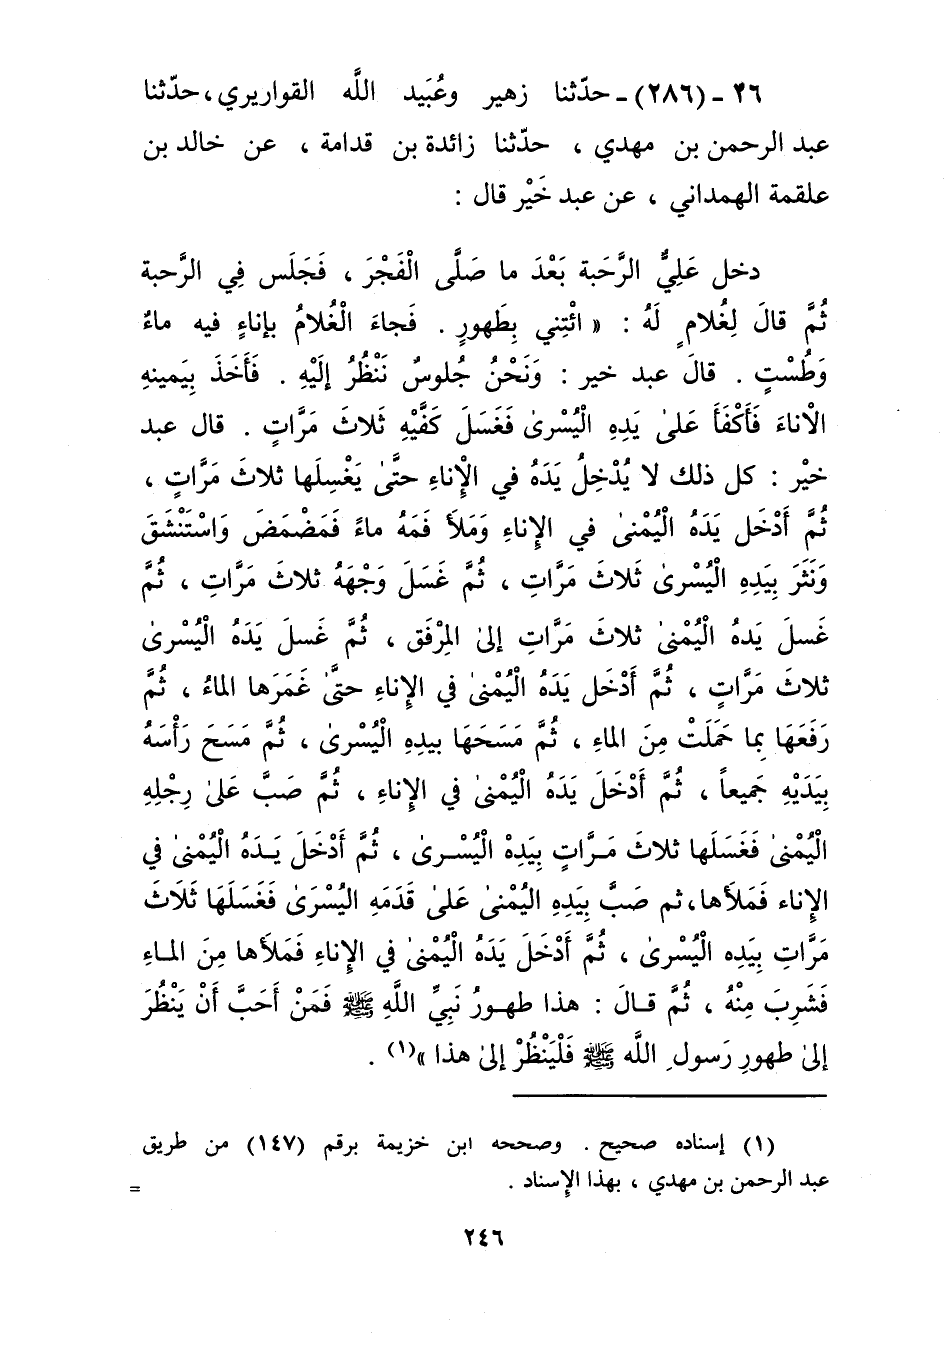 ٢٦ - (٢٨٦) - حدّثنا زهير وعُبَيد اللَّه القواريري، حدّثنا
عبد الرحمن بن مهدي ، حدّثنا زائدة بن قدامة ، عن خالد بن
علقمة الهمداني ، عن عبد خَيْر قال :
دخل عَلِيٌّ الرَّحَبة بَعْدَ ما صَلَّى الْفَجْرَ ، فَجَلَس فِي الرَّحبة
ثُمَّ قالَ لِغُلامٍ لَهُ : « ائْتِني بِطَهورٍ . فَجاءَ الْغُلامُ بإناءٍ فيه ماءٌ
وَطُسْتٍ . قالَ عبد خير : وَنَحْنُ جُلوسٌ نَنْظُرُ إلَيْهِ . فَأَخَذَ بِيَمينهِ
الْاناءَ فَأَكْفَأَ عَلىٰ يَدِهِ الْيُسْرىٰ فَغَسَلَ كَفَّيْهِ ثَلاثَ مَرَّاتٍ . قال عبد
خيْر : كل ذلك لا يُدْخِلُ يَدَهُ في الإْناءِ حتَّىٰ يَغْسِلَها ثلاثَ مَرَّاتٍ ،
ثُمَّ أَدْخَل يَدَهُ الْيُمْنىٰ في الإناءِ وَمَلأَ فَمَهُ ماءً فَمَضْمَضَ وَاسْتَنْشَقَ
وَنَثَرَ بِيَدِهِ الْيُسْرىٰ ثَلاثَ مَرَّاتٍ ، ثُمَّ غَسَلَ وَجْهَهُ ثلاثَ مَرَّاتِ ، ثُمَّ
غَسلَ يَدهُ الْيُمْنىٰ ثلاثَ مَرَّاتٍ إلىٰ المِرْفَق ، ثُمَّ غَسلَ يَدَهُ الْيُسْرىٰ
ثلاثَ مَرَّاتٍ ، ثُمَّ أَدْخَل يَدَهُ الْيُمْنىٰ في الإناءِ حتَّىٰ غَمَرَها الماءُ ، ثُمَّ
رَفَعَهَا بِما حَمَلَتْ مِنَ الماءِ ، ثُمَّ مَسَحَهَا بيدِهِ الْيُسْرىٰ ، ثُمَّ مَسَحَ رَأْسَهُ
بِيَدَيْهِ جَميعاً ، ثُمَّ أَدْخَلَ يَدَهُ الْيُمْنىٰ في الإناءِ ، ثُمَّ صَبَّ عَلىٰ رِجْلِهِ
الْيُمْنىٰ فَغَسَلَها ثلاثَ مَرَّاتٍ بِيَدِهْ الْيُسْرىٰ ، ثُمَّ أَدْخَلَ يَدَهُ الْيُمْنىٰ في
الإناء فَمَلأَها، ثم صَبَّ بِيَدِهِ الْيُمْنىٰ عَلىٰ قَدَمَهِ اليُسْرَىٰ فَغَسَلَهَا ثَلَاثَ
مَرَّاتِ بِيَدِه الْيُسْرىٰ ، ثُمَّ أَدْخَلَ يَدَهُ الْيُمْنىٰ في الإناءِ فَمَلأَها مِنَ الماءِ
فَشَرِبَ مِنْهُ ، ثُمَّ قالَ : هذا طهورُ نَبِيِّ اللَّهِ ﷺ فَمَنْ أَحَبَّ أَنْ يَنْظُرَ
إلىٰ طهورِ رَسولِ اللَّه ﷺ فَلْيَنْظُرْ إلىٰ هذا »(١) .
(١) إسناده صحيح . وصححه ابن خزيمة برقم (١٤٧) من طريق
عبد الرحمن بن مهدي ، بهذا الإسناد . =
٢٤٦